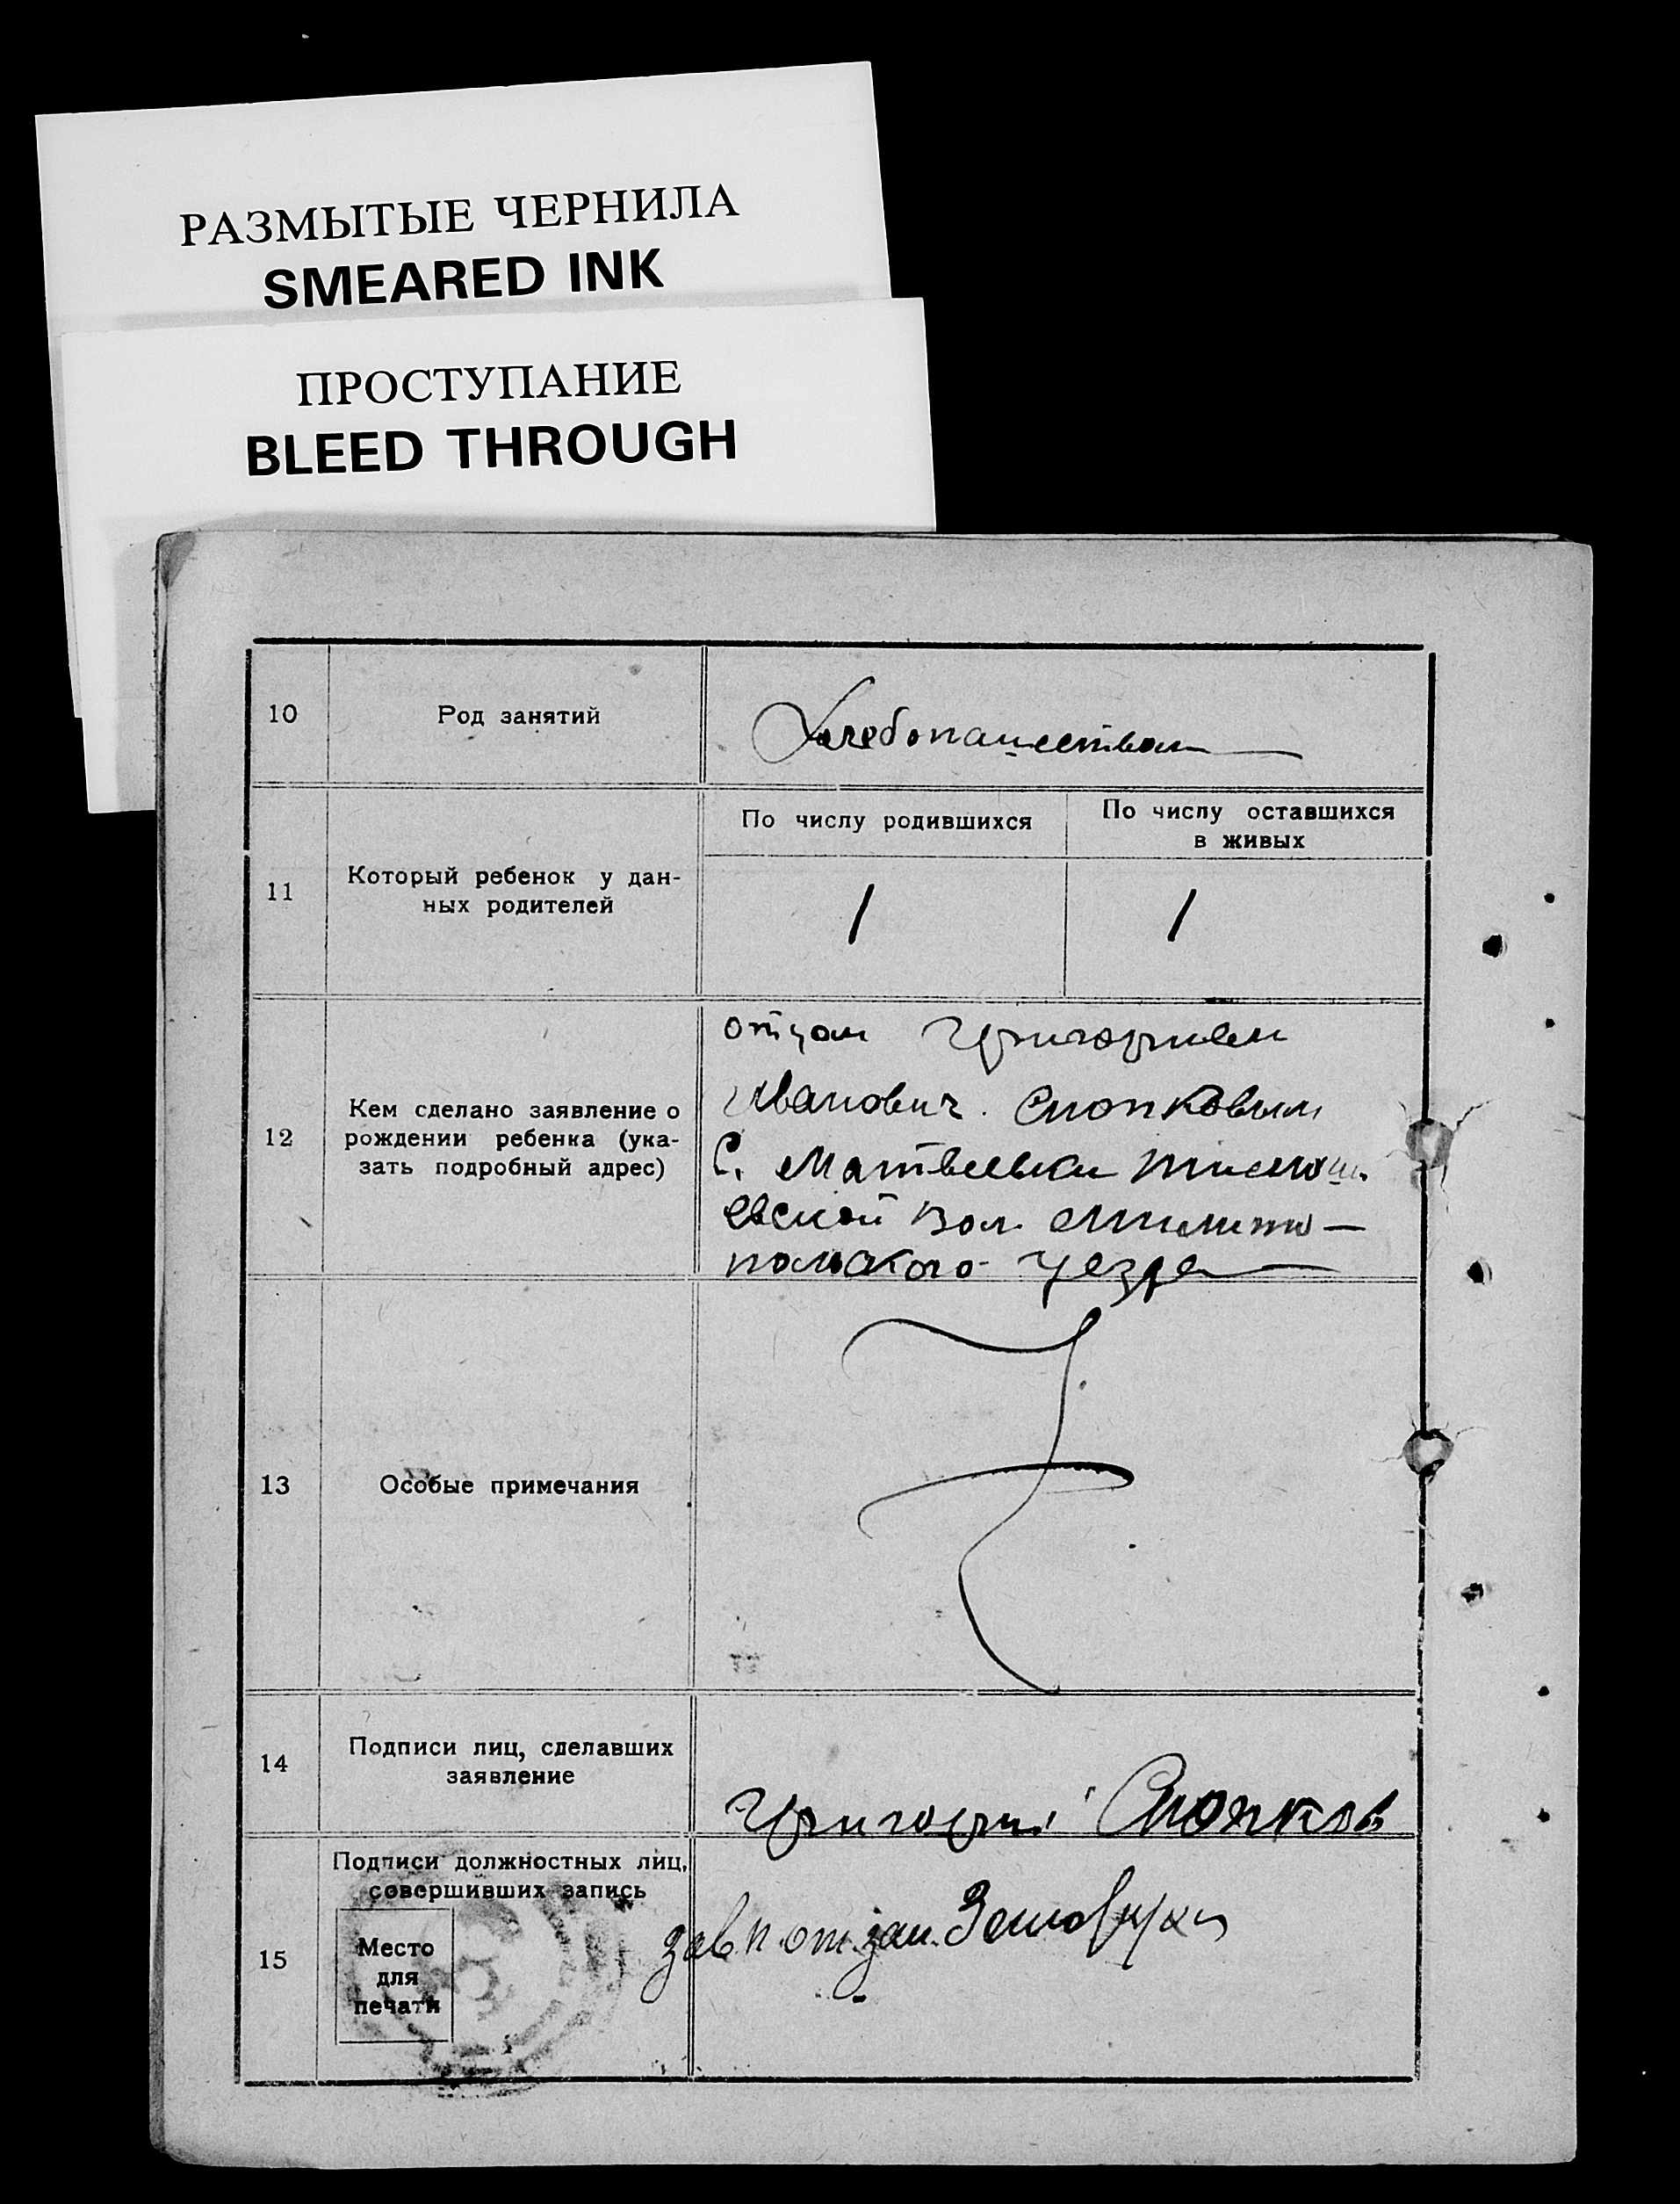 РАЗМЫТЫЕ ЧЕРНИЛА
SMEARED INK
ПРОСТУПАНИЕ
BLEED THROUGH
10
Род занятий
Хлебопашеством
11
Который ребенок у дан-
ных родителей
По числу родившихся
По числу оставшихся
в живых
1
1
12
Кем сделано заявление о
рождении ребенка (ука-
зать подробный адрес)
отцом Григорием
Иванович. Снопковым
С. Матвеевки
евской вол. Мелито-
польского уезда
13
Особые примечания
14
Подписи лиц, сделавших
заявление
Григорий Снопков
15
Подписи должностных лиц,
совершивших запись
Место
для
печати
зав. п.отд.